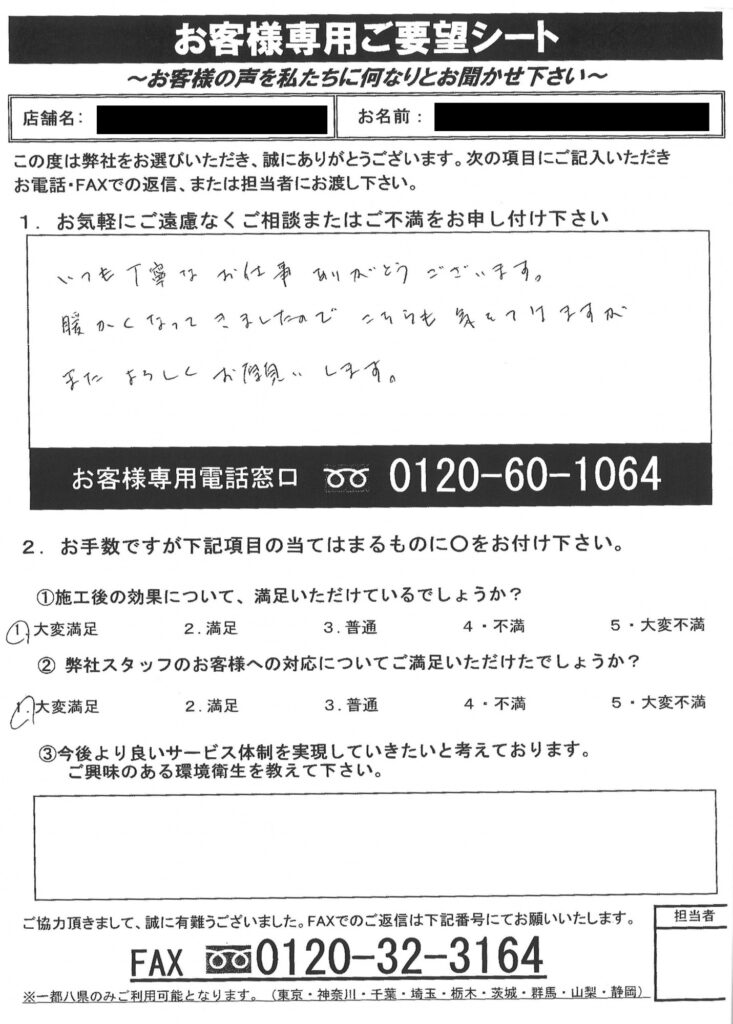 お客様専用ご要望シート
～お客様の声を私たちに何なりとお聞かせ下さい～
店舗名：
お名前：
この度は弊社をお選びいただき、誠にありがとうございます。次の項目にご記入いただき
お電話・FAXでの返信、または担当者にお渡し下さい。
１．お気軽にご遠慮なくご相談またはご不満をお申し付け下さい
いつも丁寧なお仕事ありがとうございます。
暖かくなってきましたので こちらも気をつけますが
またよろしくお願いします。
お客様専用電話窓口 0120-60-1064
２．お手数ですが下記項目の当てはまるものに〇をお付け下さい。
①施工後の効果について、満足いただけているでしょうか？
１．大変満足 ２．満足 ３．普通 ４・不満 ５・大変不満
② 弊社スタッフのお客様への対応についてご満足いただけたでしょうか？
１．大変満足 ２．満足 ３．普通 ４・不満 ５・大変不満
③今後より良いサービス体制を実現していきたいと考えております。
ご興味のある環境衛生を教えて下さい。
ご協力頂きまして、誠に有難うございました。FAXでのご返信は下記番号にてお願いいたします。
担当者
FAX 0120-32-3164
※一都八県のみご利用可能となります。（東京・神奈川・千葉・埼玉・栃木・茨城・群馬・山梨・静岡）